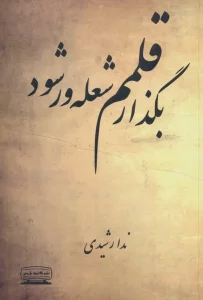 بگذار قلمم شعله ور شود
ندا رشیدی